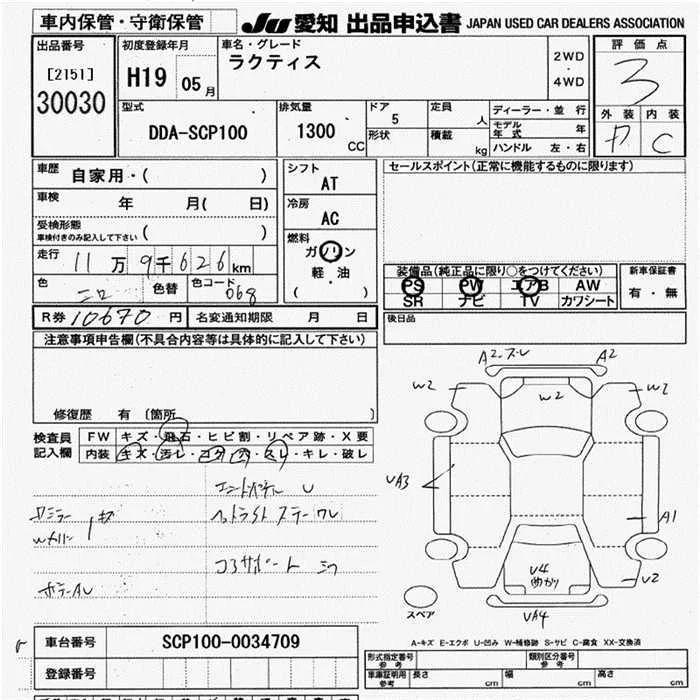 車内保管・守衛保管
JU 愛知 出品申込書 JAPAN USED CAR DEALERS ASSOCIATION
出品番号
[2151]
30030
初度登録年月
H19 05月
車名・グレード
ラクティス
2WD
・
4WD
評価点
3
外装 内装
C
型式
DDA-SCP100
排気量
1300
CC
ドア
5
形状
定員
人
積載
kg
ディーラー・並行
モデル年式 年
ハンドル 左・右
車歴
自家用・( )
車検 年 月( 日)
受検形態
車検付きのみ記入して下さい ( )
走行 11万9千626km
色 色替 色コード 068
シフト
AT
冷房
AC
燃料
ガソリン
・
軽油
( )
セールスポイント(正常に機能するものに限ります)
装備品(純正品に限り○をつけてください)
PS PW エアB AW
SR ナビ TV カワシート
新車保証書
有・無
後日品
R券 10670 円 名変通知期限 月 日
注意事項申告欄(不具合内容等は具体的に記入して下さい)
修復歴 有 〔箇所 〕
検査員記入欄
FW キズ・飛石・ヒビ割・リペア跡・X要
内装 キズ・汚レ・コゲ・穴・スレ・キレ・破レ
A2 W2 W2 W2
UA3 A1
U4 U2
UA4
スペア
A-キズ E-エクボ U-凹み W-補修跡 S-サビ C-腐食 XX-交換済
車台番号 SCP100-0034709
登録番号
形式指定番号 参考
類別区分番号 参考
車庫証明用 参考 長さ cm 幅 cm 高さ cm